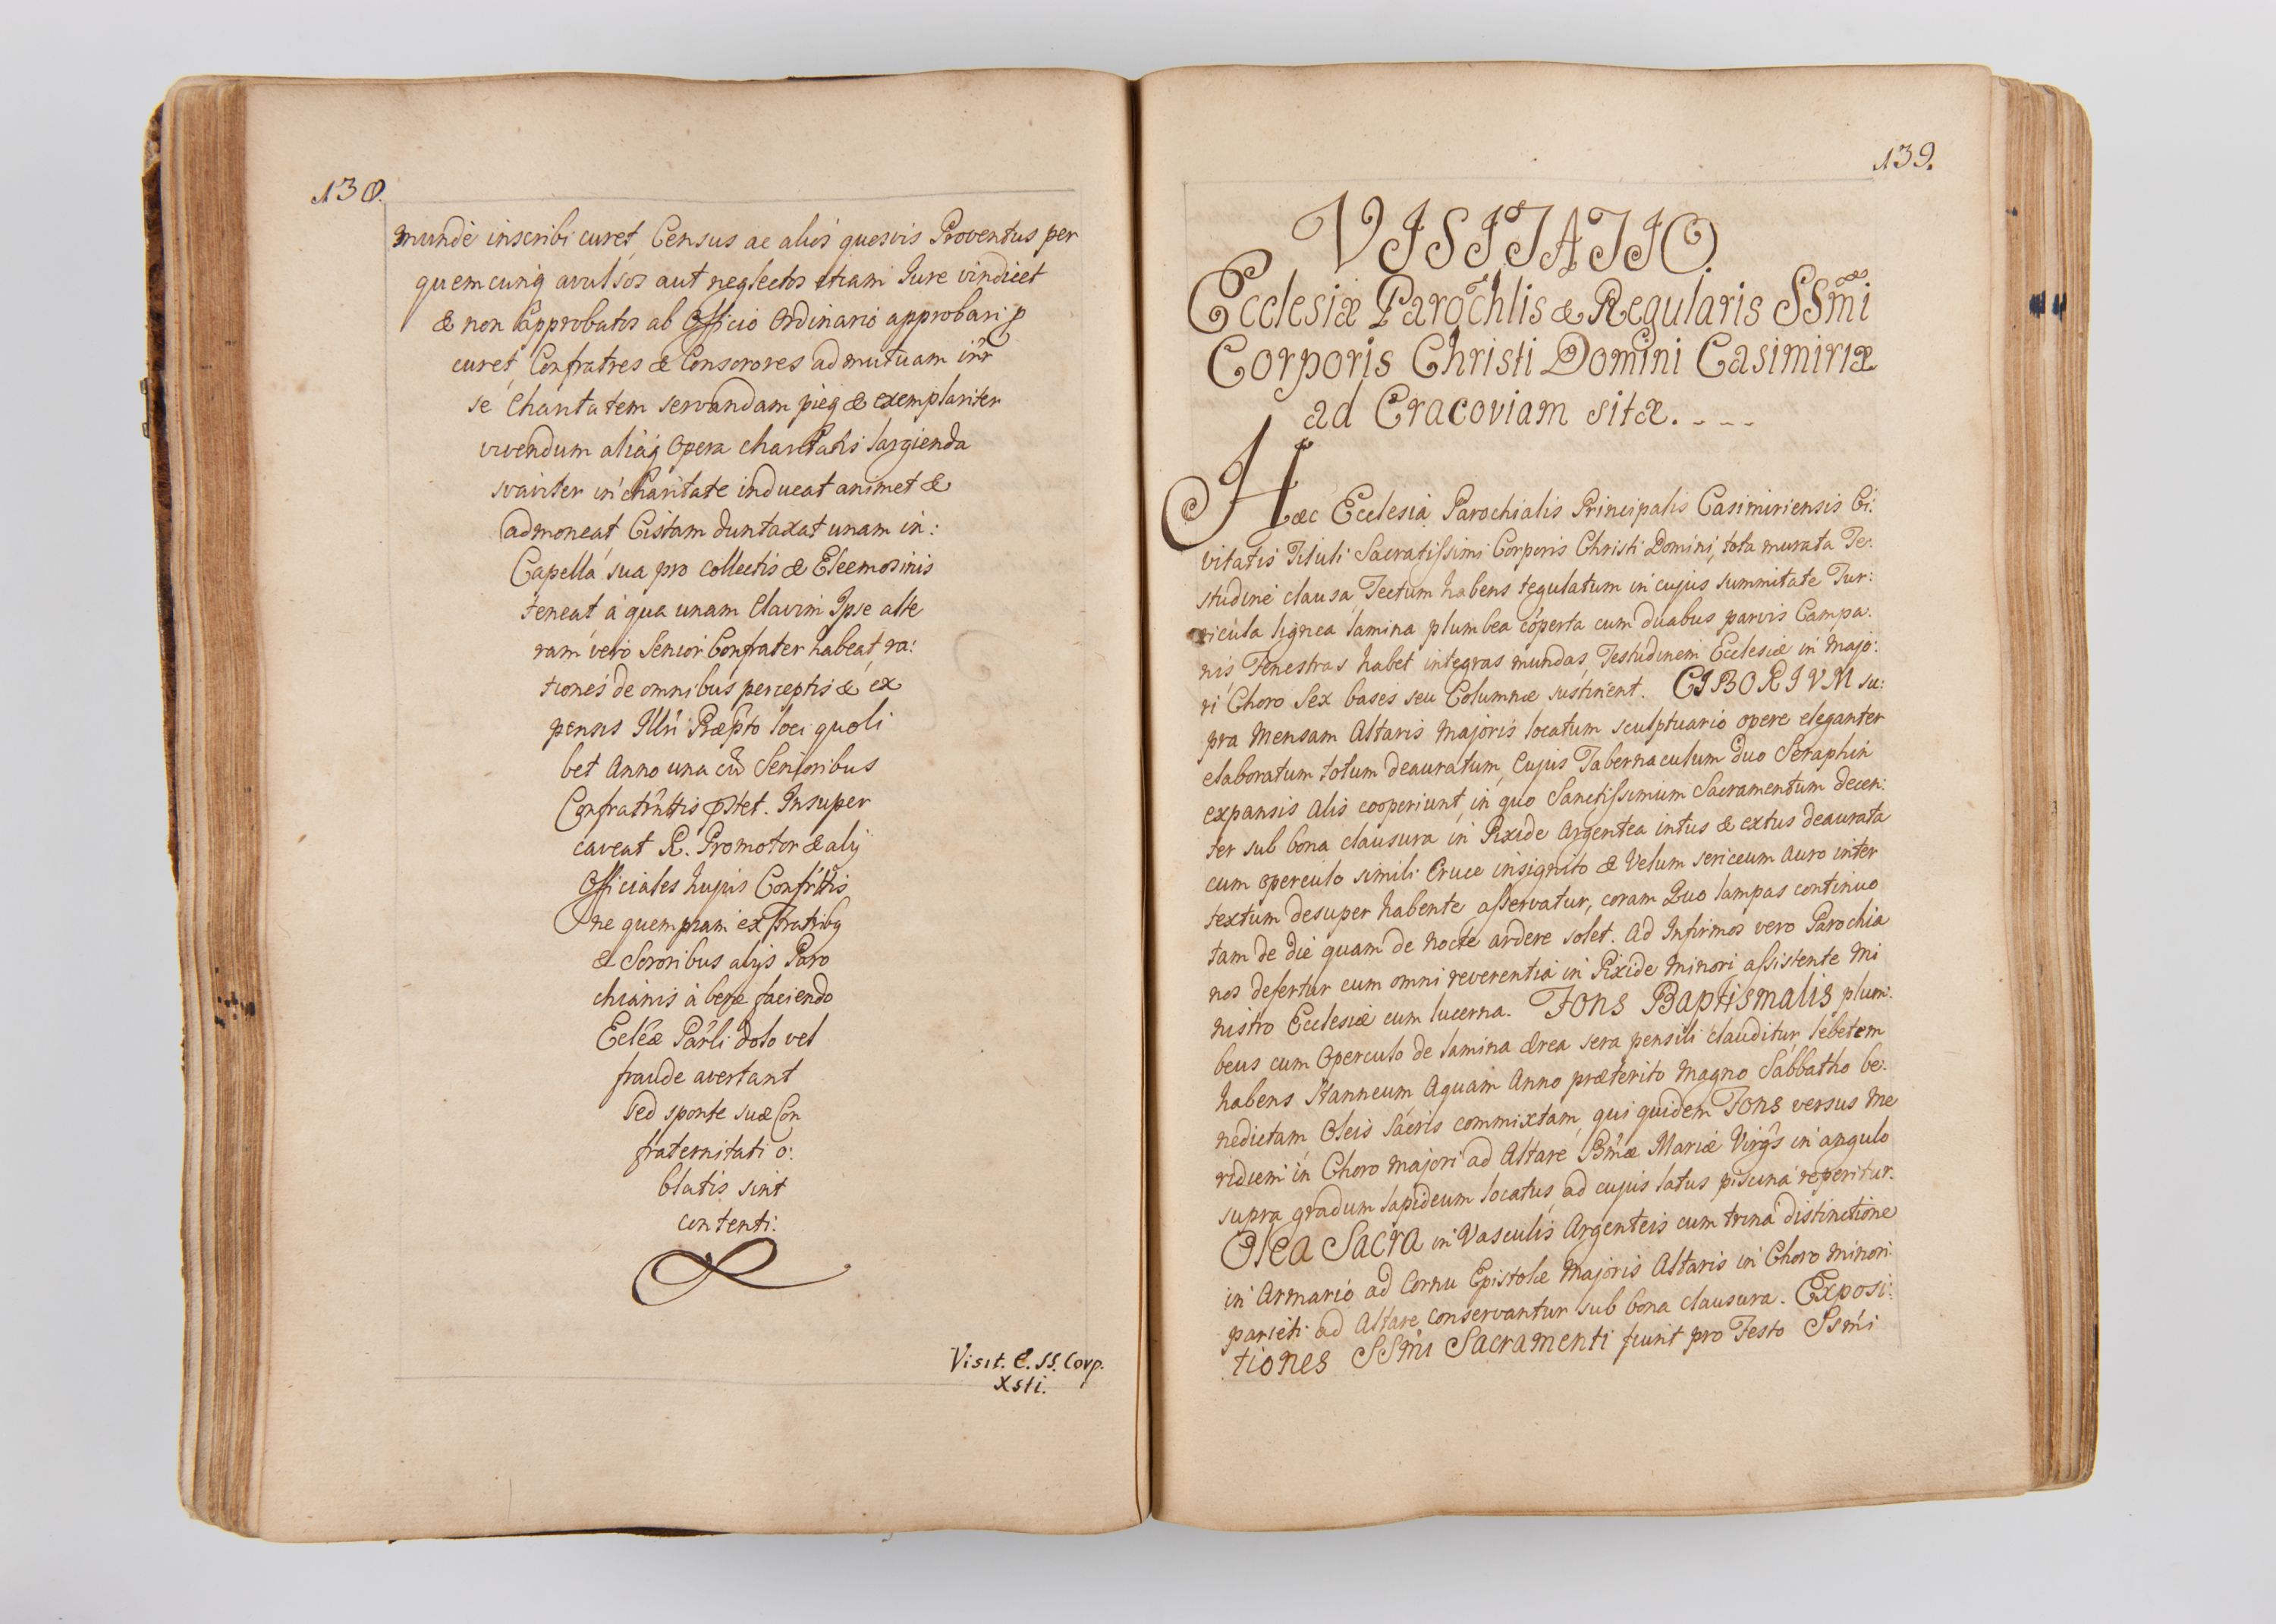 138.
mundè inscribi curet, Census ac alios quosvis Proventus per
quemcunq avulsos aut neglectos etiam Jure vindicet
& non approbatos ab Officio Ordinario approbari p
curet, Confratres & Consorores ad mutuam inr
se Charitatem servandam pieq & exemplariter
vivendum aliaq Opera charitatis largienda
svaviter in charitate inducat animet &
admoneat Cistam duntaxat unam in:
Capella sua pro collectis & Eleemosinis
teneat à qua unam Clavim Ipse alte
ram vero Senior Confrater habeat, ra:
tiones de omnibus perceptis & ex
pensis Illri Præpto loci quoli
bet Anno una cũ Senioribus
Confratrnttis pstet. Insuper
caveat R. Promotor & alij
Officiales hujus Confrttis
ne quempiam ex Fratribq
& Sororibus alijs Paro
chianis à bene faciendo
Eclêæ Pârli dolo vel
fraude avertant
sed sponte suæ Con
fraternitati o:
blatis sint
contenti.
Visit. E. SS. Corp.
Xsti.
139.
VISITATIO
Ecclesiæ Parochlis & Regularis SSmi
Corporis Christi Domini Casimiriæ
ad Cracoviam sitæ. - - -
Hæc Ecclesia Parochialis Principalis Casimiriensis Ci:
vitatis Tituli Sacratissimi Corporis Christi Domini, tota murata Te:
studine clausa, Tectum habens tegulatum in cujus summitate Tur:
ricula lignea lamina plumbea coperta cum duabus parvis Campa:
nis Fenestras habet integras mundas, Testudinem Ecclesiæ in majo:
ri Choro Sex bases seu Columnæ sustinent. CIBORIVM su:
pra Mensam Altaris Majoris locatum sculptuario opere eleganter
elaboratum totum deauratum, Cujus Tabernaculum duo Seraphin
expansis alis cooperiunt, in quo Sanctissimum Sacramentum decen:
ter sub bona clausura in Pixide Argentea intus & extus deaurata
cum operculo simili Cruce insignito & Velum sericeum auro inter
textum desuper habente asservatur, coram Quo lampas continuo
tam de die quam de nocte ardere solet. Ad Infirmos vero Parochia
nos defertur cum omni reverentia in Pixide Minori assistente Mi
nistro Ecclesiæ cum lucerna. Fons Baptismalis plum:
beus cum Operculo de lamina ærea sera pensili clauditur, lebetem
habens Stanneum Aquam Anno præterito Magno Sabbatho be:
nedictam, Oleis Sacris commixtam, qui quidem Fons versus Me
ridiem in Choro majori ad Altare Bmæ Mariæ Virgs in angulo
supra gradum lapideum locatus, ad cujus latus piscina reperitur.
Olea Sacra in Vasculis Argenteis cum trina distinctione
in Armario ad Cornu Epistolæ Majoris Altaris in Choro minori
parieti ad Altare conservantur sub bona clausura. Exposi:
tiones SSmi Sacramenti fiunt pro Festo Ssmi